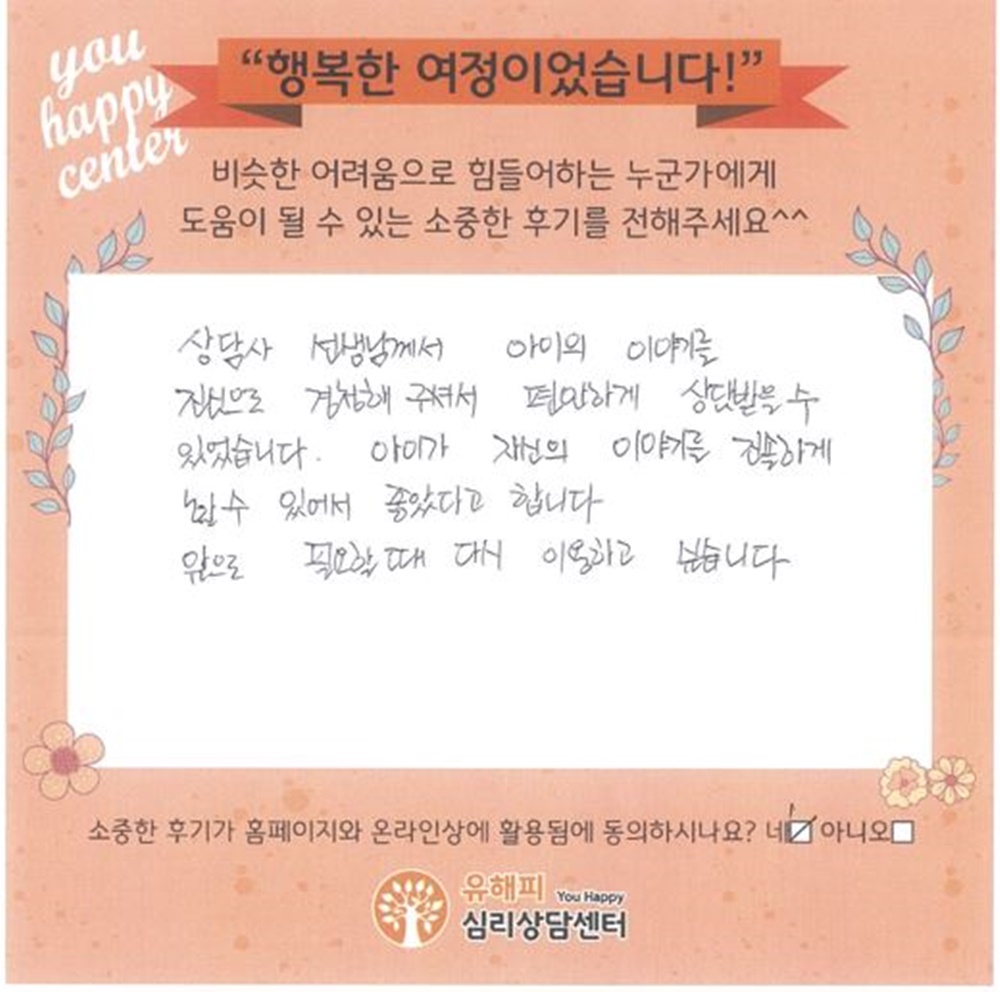 you
happy
center
“행복한 여정이었습니다!”
비슷한 어려움으로 힘들어하는 누군가에게
도움이 될 수 있는 소중한 후기를 전해주세요^^
상담사 선생님께서 아이의 이야기를
진심으로 경청해 주셔서 편안하게 상담받을 수
있었습니다. 아이가 자신의 이야기를 진솔하게
할 수 있어서 좋았다고 합니다
앞으로 필요할 때 다시 이용하고 싶습니다
소중한 후기가 홈페이지와 온라인상에 활용됨에 동의하시나요? 네☑ 아니오☐
유해피 You Happy
심리상담센터